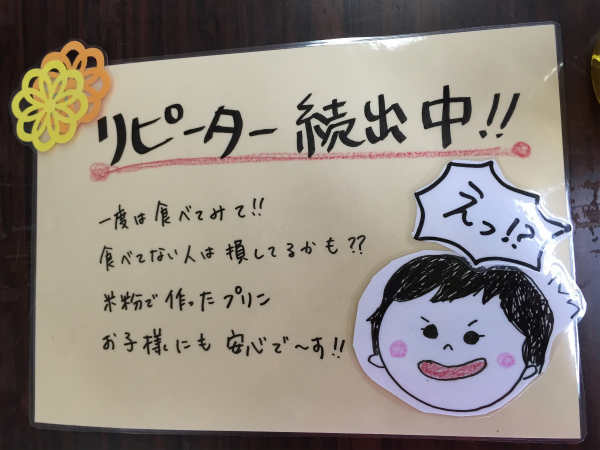 リピーター 続出中!!
一度は食べてみて!!
食べてない人は損してるかも??
米粉で作ったプリン
お子様にも 安心で〜す!!
えっ!?